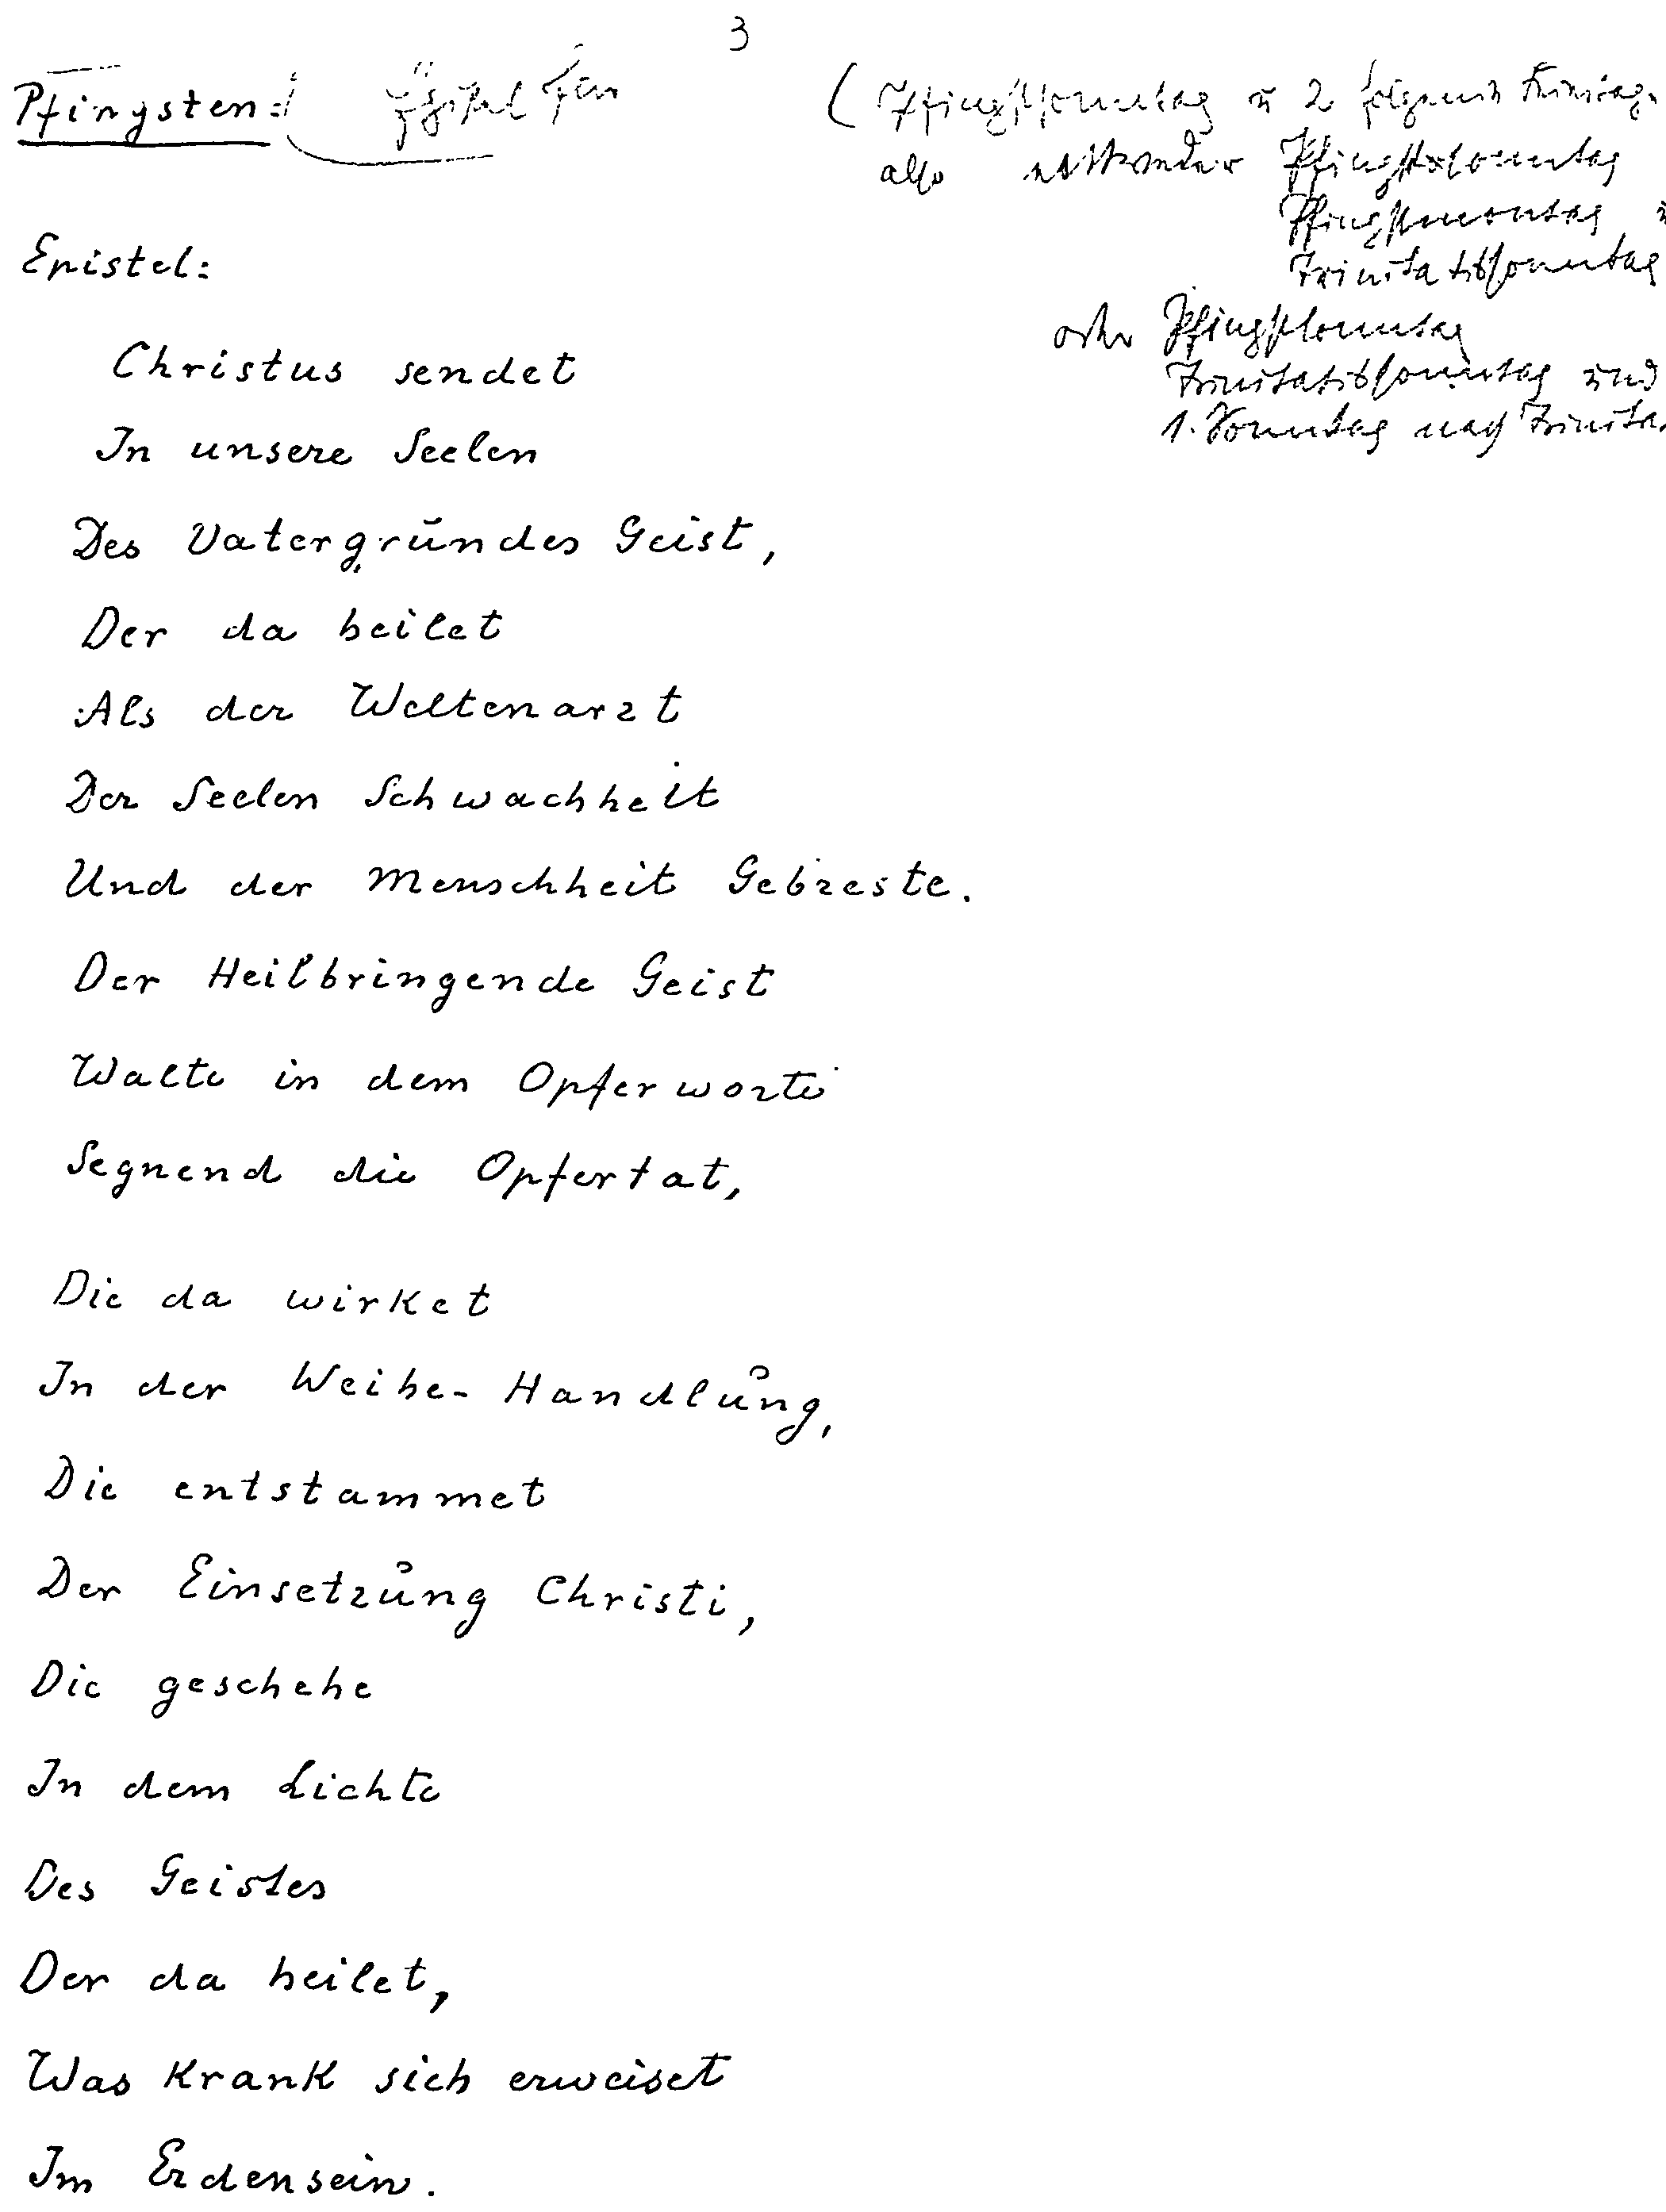 3
Pfingsten:
(Pfingstsonntag u 2 folgende
also entweder Pfingstsonntag
Pfingstmontag u
Trinitatissonntag
oder Pfingstsonntag
Trinitatissonntag und
1. Sonntag nach Trinita.
Epistel:
Christus sendet
In unsere Seelen
Des Vatergrŭndes Geist,
Der da heilet
Als der Weltenarzt
Der Seelen Schwachheit
Und der Menschheit Gebreste.
Der Heilbringende Geist
Walte in dem Opferworte
Segnend die Opfertat,
Die da wirket
In der Weihe-Handlŭng,
Die entstammet
Der Einsetzŭng Christi,
Die geschehe
In dem Lichte
Des Geistes
Der da heilet,
Was Krank sich erweiset
Im Erdensein.